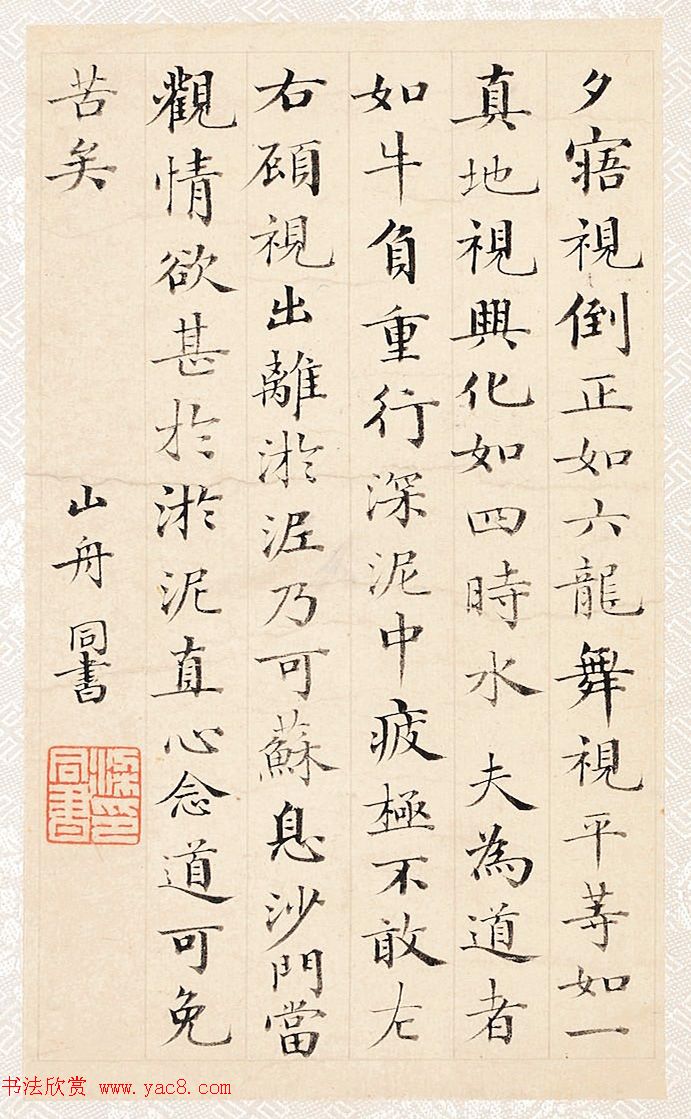 夕寤視倒正如六龍舞視平等如一
真地視興化如四時水夫為道者
如牛負重行深泥中疲極不敢左
右顧視出離淤泥乃可蘇息沙門當
觀情欲甚於淤泥直心念道可免
苦矣
山舟同書
梁同書印
书法欣赏 www.yac8.com